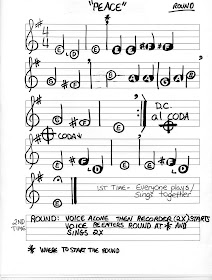 "PEACE"
ROUND
E D E E E #F #F
E #F D A G A B
D.C.
al CODA
CODA
E #F D E #F D
E
1ST TIME - Everyone plays/
Sings together
2ND TIME
ROUND: VOICE ALONE THEN RECORDER (2X) STARTS
VOICE REENTERS ROUND AT * AND
SINGS 2X
* WHERE TO START THE ROUND